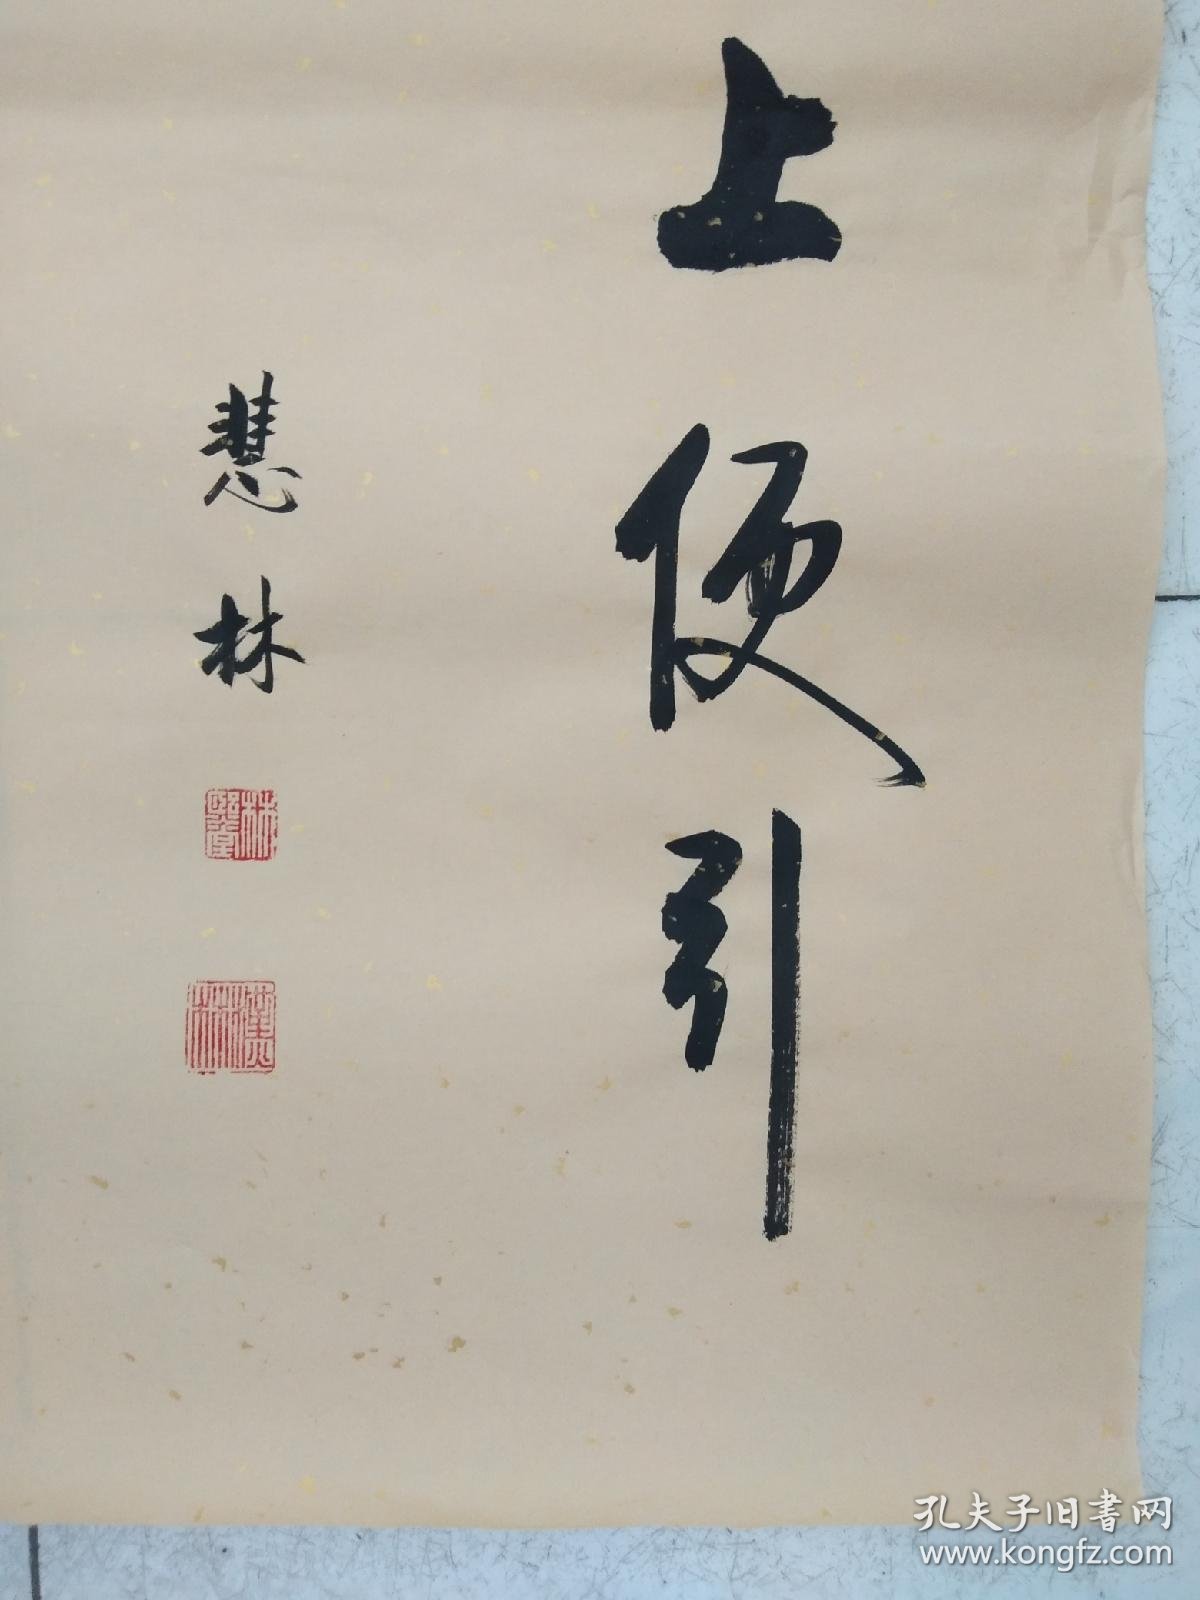 上便引
慧林
孔夫子旧书网
www.kongfz.com